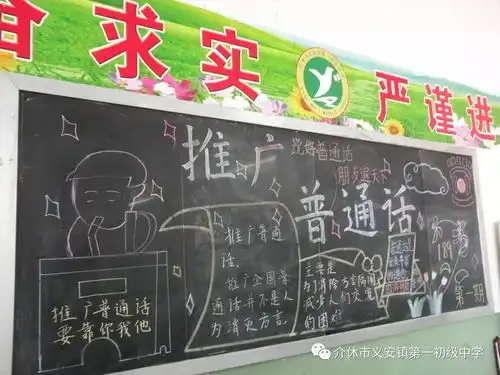 奋求实
严谨进
推广
说好普通话
朋友遍天下
普通话
推广普通
话.
推广全国普
通话并不是人
为消灭方言.
主要是
为了消除方言隔阂
减少人们交流
的困难
推广普通话
要靠你我他
189
第一期
介休市义安镇第一初级中学